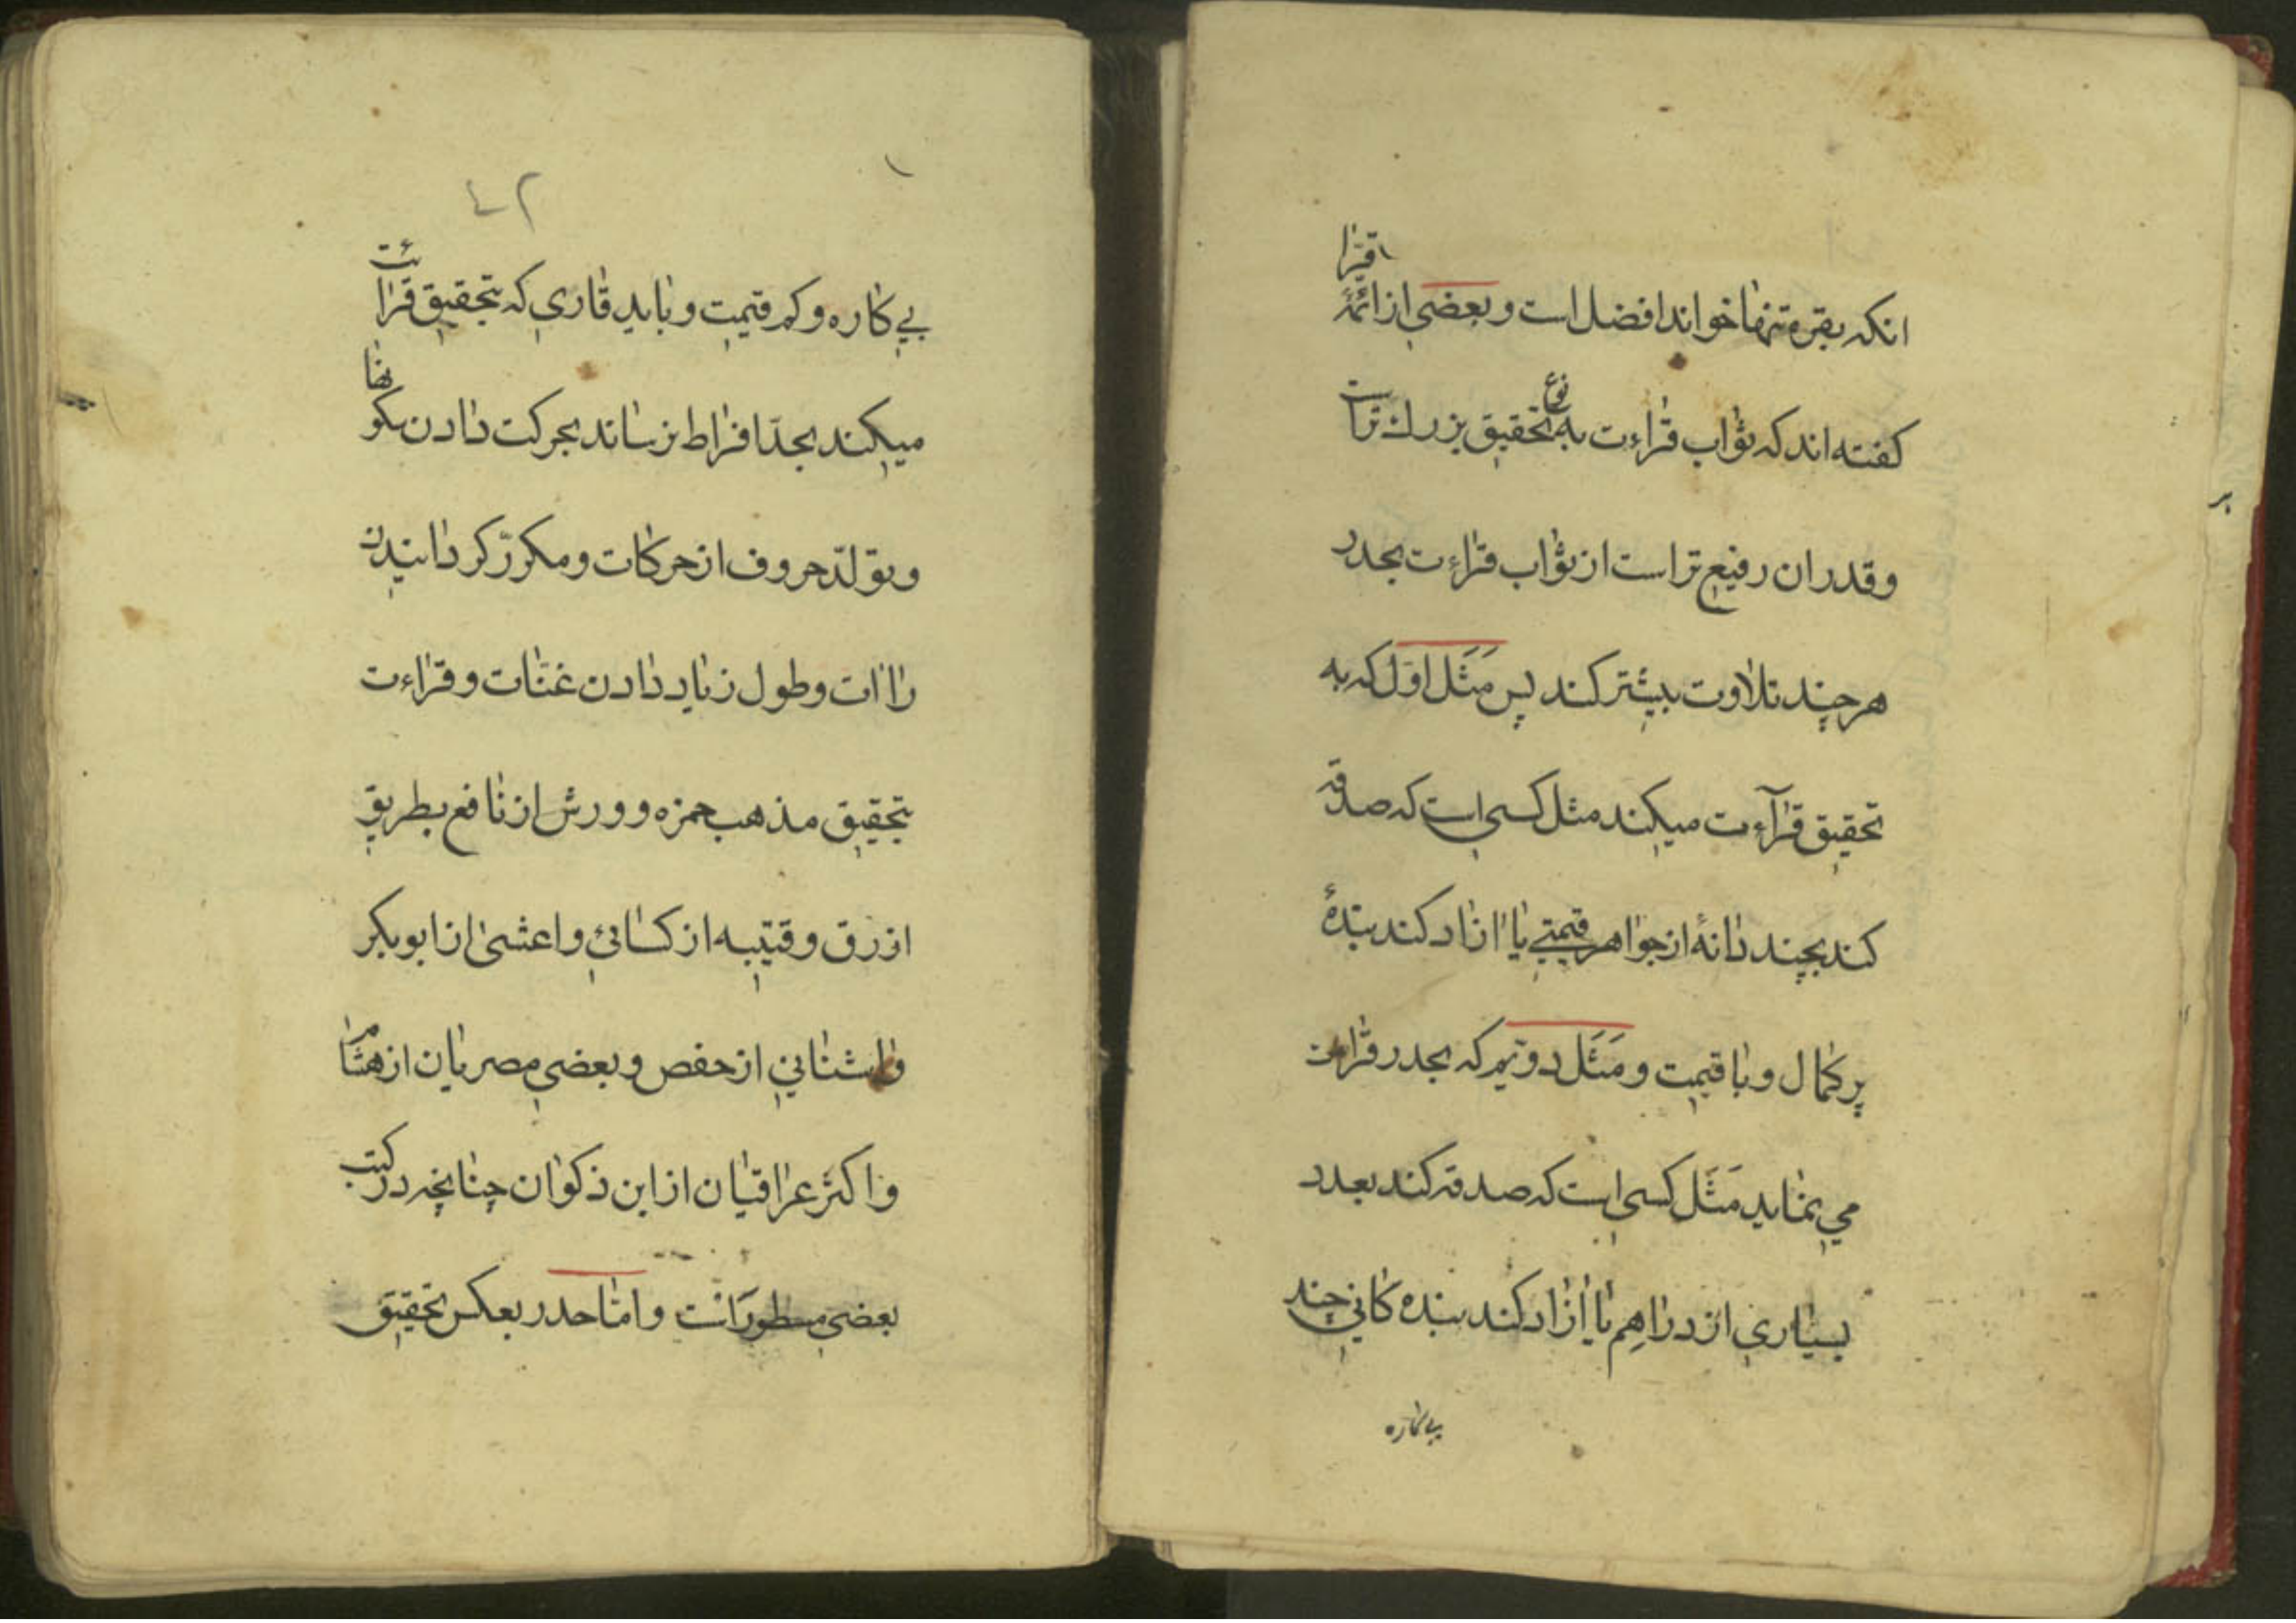 انکه بقره تنها خواند افضل است و بعضي از ائمّهٔ اقرا
کفته اند که ثواب قراءت به نوع تحقیق بزرك تراست
و قدر ان رفیع تر است از ثواب قراءت بحدر
هر چند تلاوت بیشتر کند پس مَثَل اوّل که به
تحقیق قرآءت میکند مثل کسی است که صدقه
کند بچند دانهٔ از جواهر قیمتي یا ازاد کند بندهٔ
پر کمال و با قیمت و مَثَل دویّم که بحدر قراءت
مي نماید مَثَل کسی است که صدقه کند بعدد
بسیاري از دراهِم یا أزاد کند بنده کاني چند
بي کاره
٤٢
بي کاره و کم قیمت و باید قاري که بتحقیق قرائت
میکند بحدّ افراط نرساند بحرکت دادن سکونها
و تولّد حروف از حرکات و مکرّر کردانیدن
راات و طول زیاد دادن غنّات و قراءت
بتحقیق مذهب حمزه و ورش از نافع بطریق
ازرق و قتیبه از کسائي و اعشی از ابوبکر
واشناني از حفص و بعضي مصریان از هشام
و اکثر عراقیان از ابن ذکوان چنانچه در کتب
بعضي مسطور است و امّا حدر بعکس تحقیق